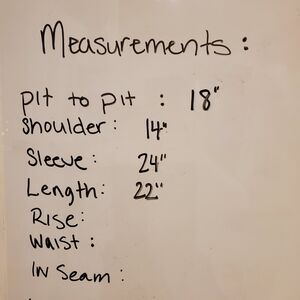 Measurements :
pit to pit : 18"
Shoulder : 14"
Sleeve : 24"
Length : 22"
Rise :
Waist :
In Seam :